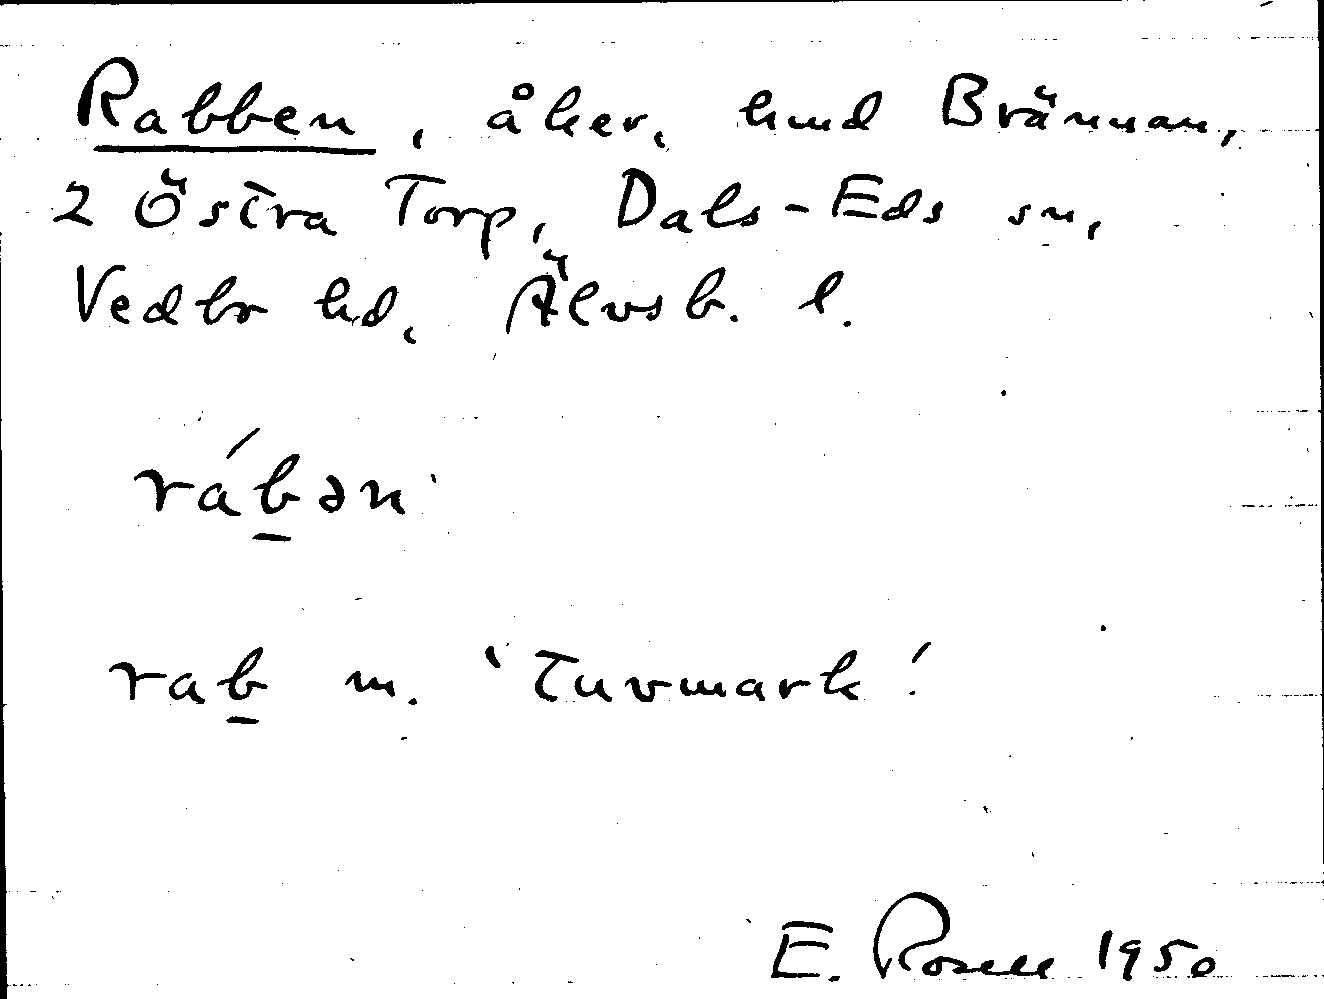 Rabben, åker, hmd Brännan,
2 Östra Torp, Dals-Eds sn,
Vedbo hd, Älvsb. l.
rább̲ən
rab̲ m. 'tuvmark'.
E. Rosell 1950